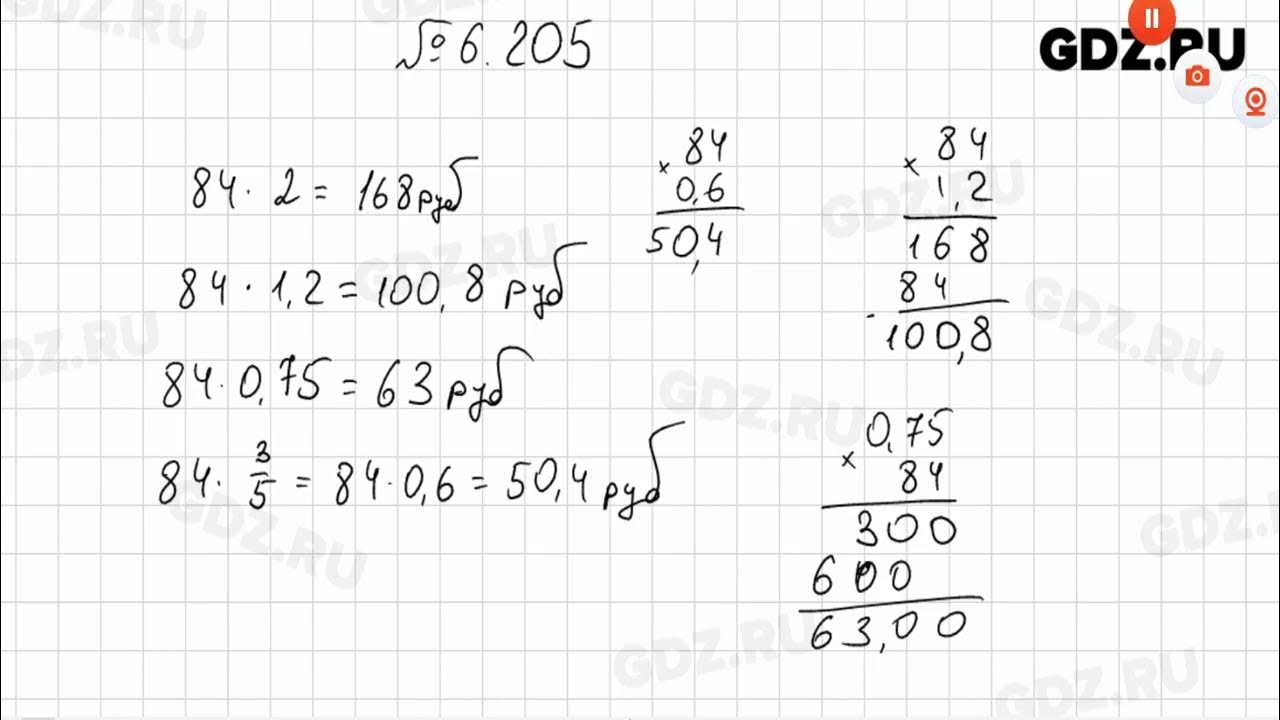 № 6.205
GDZ.RU
84 · 2 = 168 руб
84 · 1,2 = 100,8 руб
84 · 0,75 = 63 руб
84 · 3/5 = 84 · 0,6 = 50,4 руб
84
× 0,6
50,4
84
× 1,2
168
84
100,8
0,75
× 84
300
600
63,00
GDZ.RU
GDZ.RU
GDZ.RU
GDZ.RU
GDZ.RU
GDZ.RU
GDZ.RU
GDZ.RU
GDZ.RU
GDZ.RU
GDZ.RU